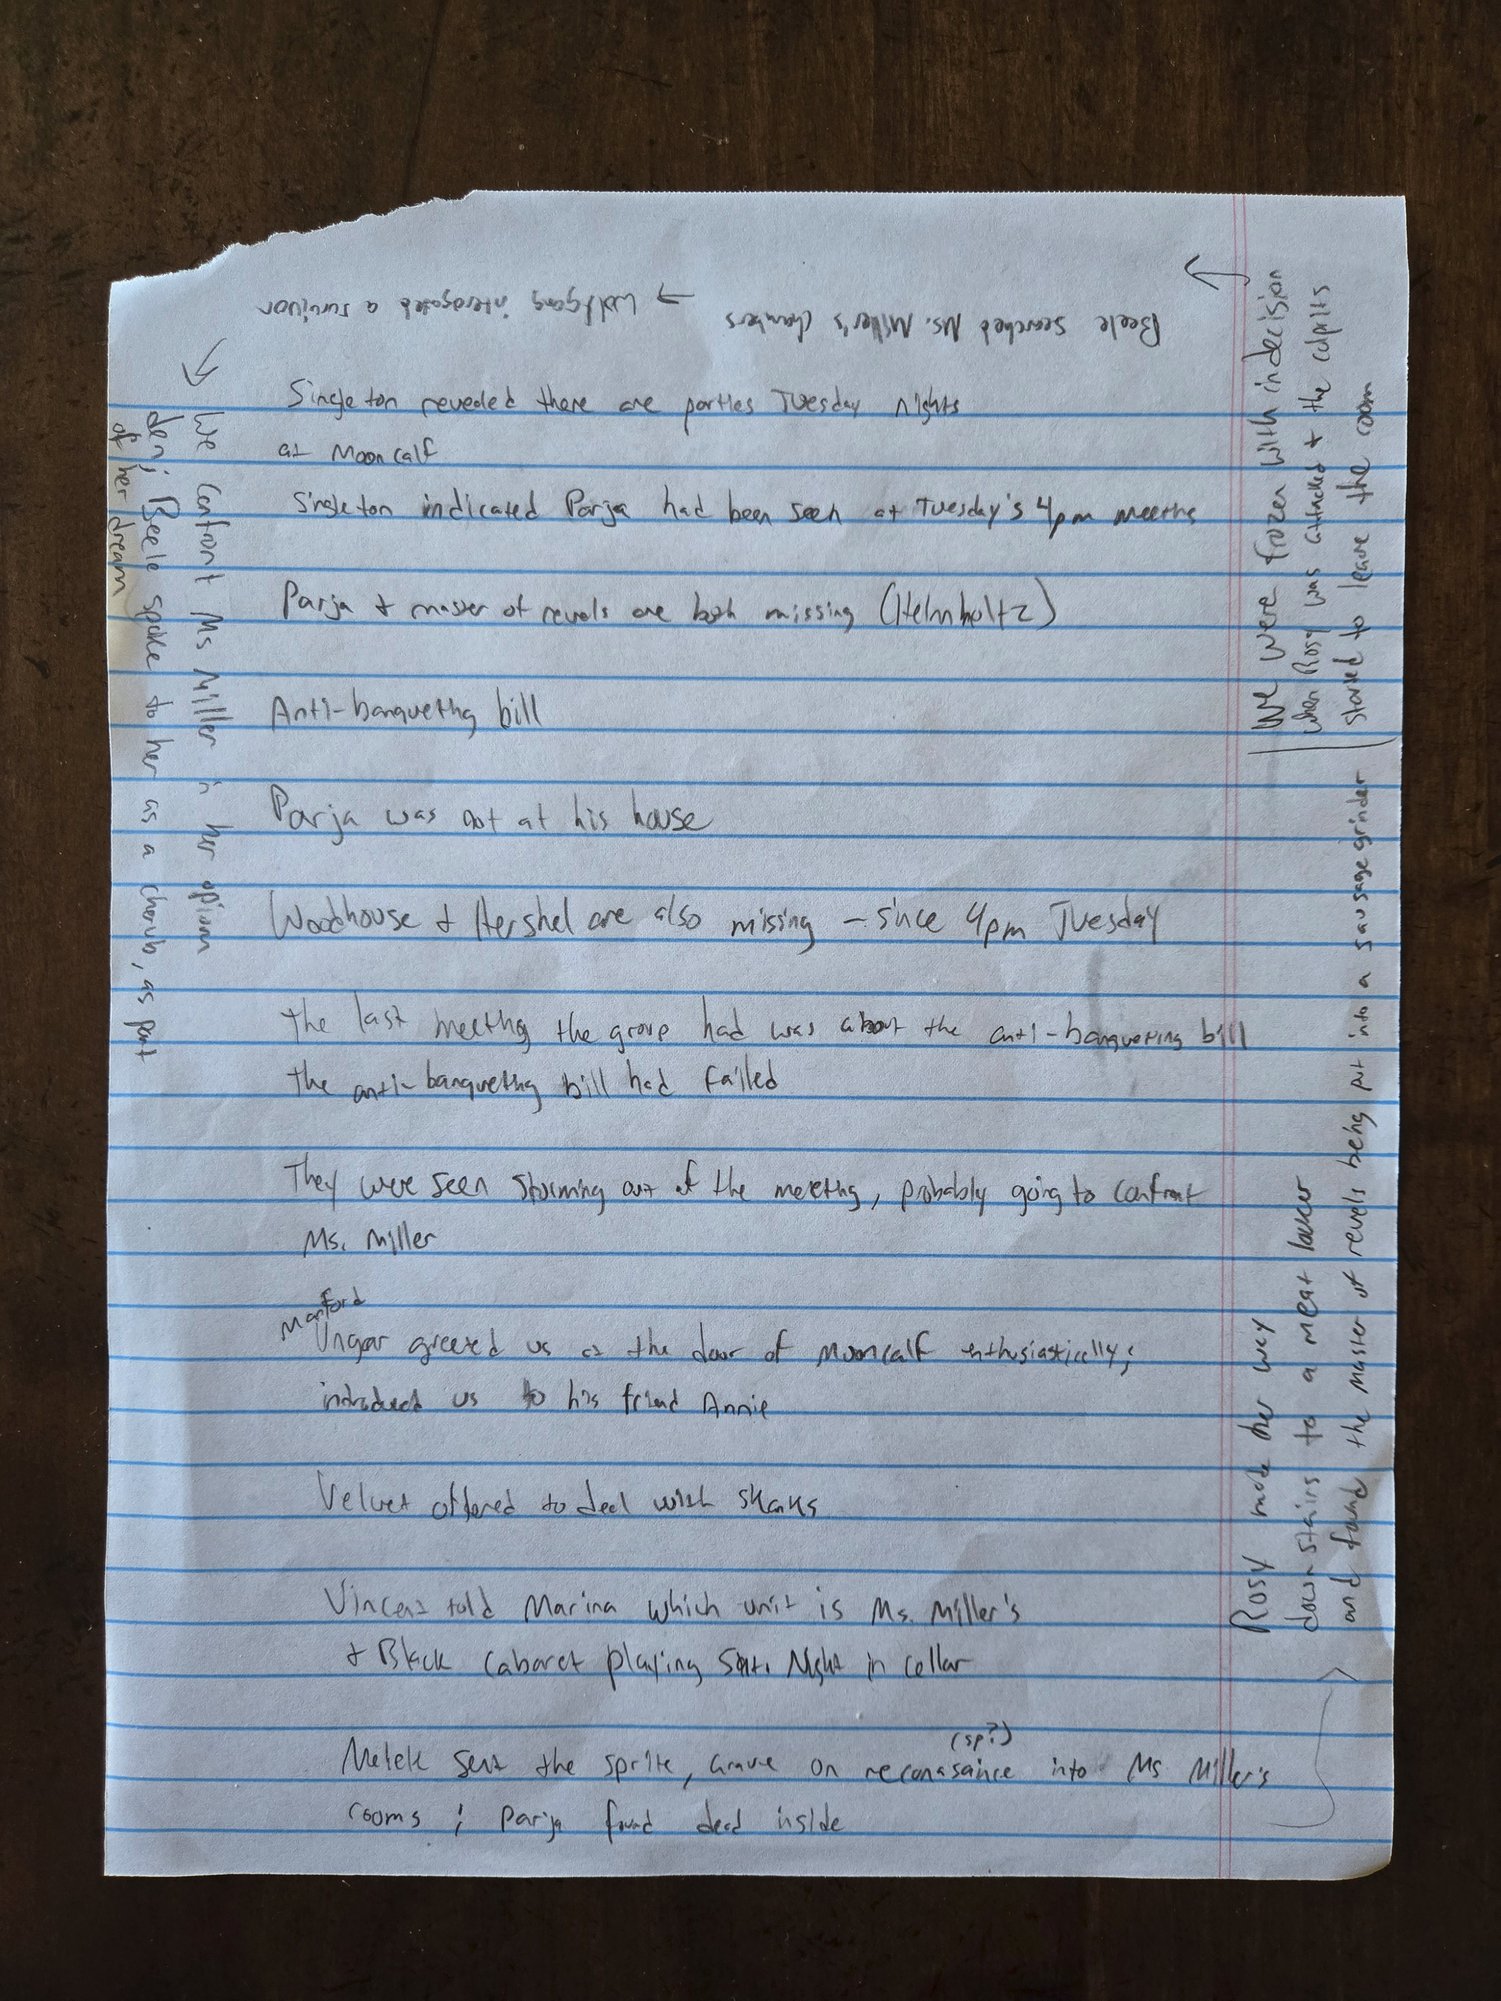 Singleton reveded there are parties Tuesday nights
at Mooncalf
Singleton indicated Parja had been seen at Tuesday's 4pm meeting
Parja + master of revels are both missing (Helmholtz)
Anti-banqueting bill
Parja was not at his house
Woodhouse + Hershel are also missing - since 4pm Tuesday
The last meeting the group had was about the anti-banqueting bill
The anti-banqueting bill had failed
They were seen storming out of the meeting, probably going to confront
Ms. Miller
Manford
Ungar greeted us at the door of Mooncalf enthusiastically;
introduced us to his friend Annie
Velvet offered to deal with skanks
Vincent told Marina which unit is Ms. Miller's
+ Black Cabaret playing Sat. Night in cellar
(sp?)
Melek sent the sprite, Grave on reconasaince into Ms Miller's
rooms; Parja found dead inside
Rosy made her way
downstairs to a meat locker
and found the master of revels being put into a sausage grinder
We were frozen with indecision
when Rosy was attacked + the culprits
started to leave the room
Beele searched Ms. Miller's Chambers
→ Wolfgang interogated a survivor
We confront Ms Miller in her opium
den; Beele spoke to her as a cherub, as part
of her dream